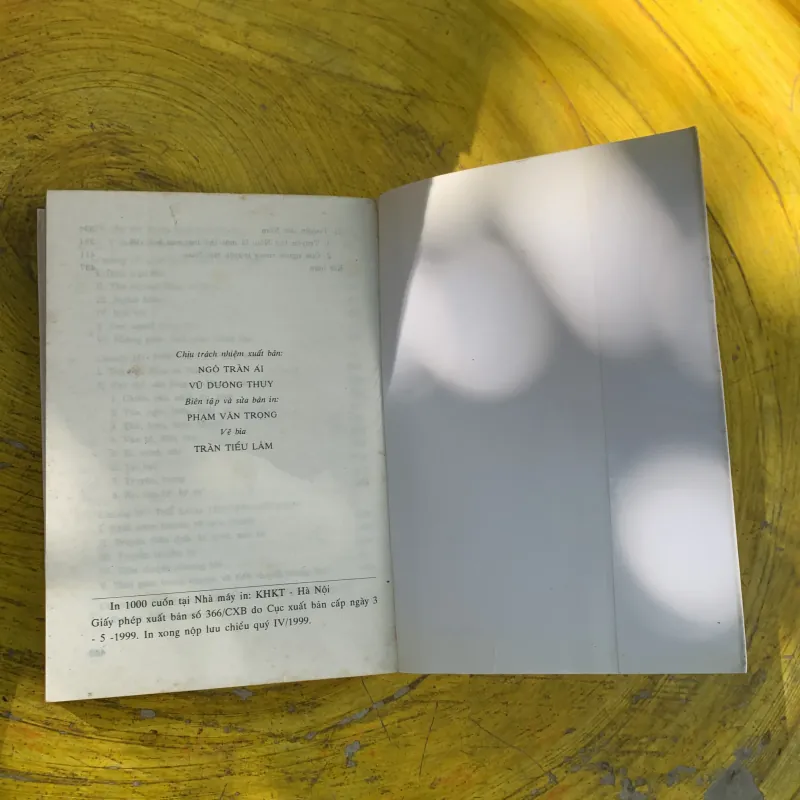 Chịu trách nhiệm xuất bản:
NGÔ TRẦN AI
VŨ DƯƠNG THỤY
Biên tập và sửa bản in:
PHẠM VĂN TRỌNG
Vẽ bìa
TRẦN TIỂU LÂM
In 1000 cuốn tại Nhà máy in: KHKT - Hà Nội
Giấy phép xuất bản số 366/CXB do Cục xuất bản cấp ngày 3
- 5 -1999. In xong nộp lưu chiểu quý IV/1999.